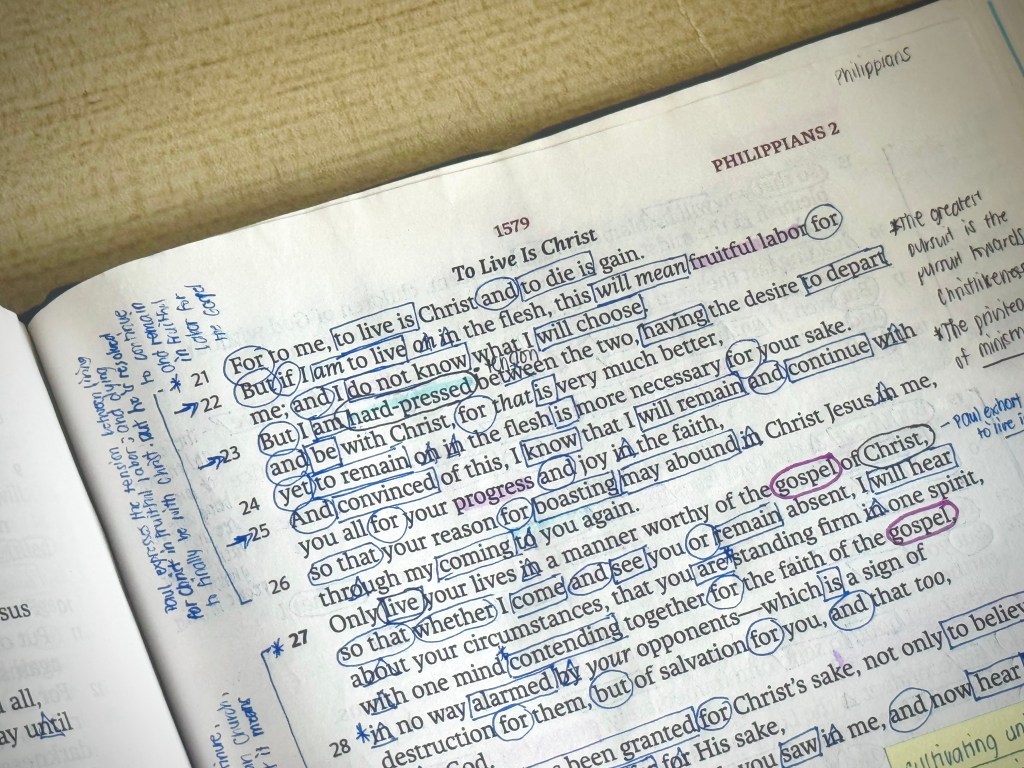 Philippians
PHILIPPIANS 2
1579
To Live Is Christ
21 For to me, to live is Christ and to die is gain.
22 But if I am to live on in the flesh, this will mean fruitful labor for
me; and I do not know what I will choose.
23 But I am hard-pressed between the two, having the desire to depart
and be with Christ, for that is very much better,
24 yet to remain on in the flesh is more necessary for your sake.
25 And convinced of this, I know that I will remain and continue with
you all for your progress and joy in the faith,
26 so that your reason for boasting may abound in Christ Jesus in me,
through my coming to you again.
27 Only live your lives in a manner worthy of the gospel of Christ,
so that whether I come and see you or remain absent, I will hear
about your circumstances, that you are standing firm in one spirit,
with one mind contending together for the faith of the gospel,
28 in no way alarmed by your opponents—which is a sign of
destruction for them, but of salvation for you, and that too,
been granted for Christ's sake, not only to believe
for His sake,
you saw in me, and now hear
*The greatest
pursuit is the
pursuit towards
Christlikeness
*The
of
- Paul exhort
to live
Paul express the tension between living
for Christ in fruitful labor, and dying
to finally be with Christ but he resolved
to continue
* and remain
in fruitful
labor for
the Gospel
sus
all,
ay until
cultivating